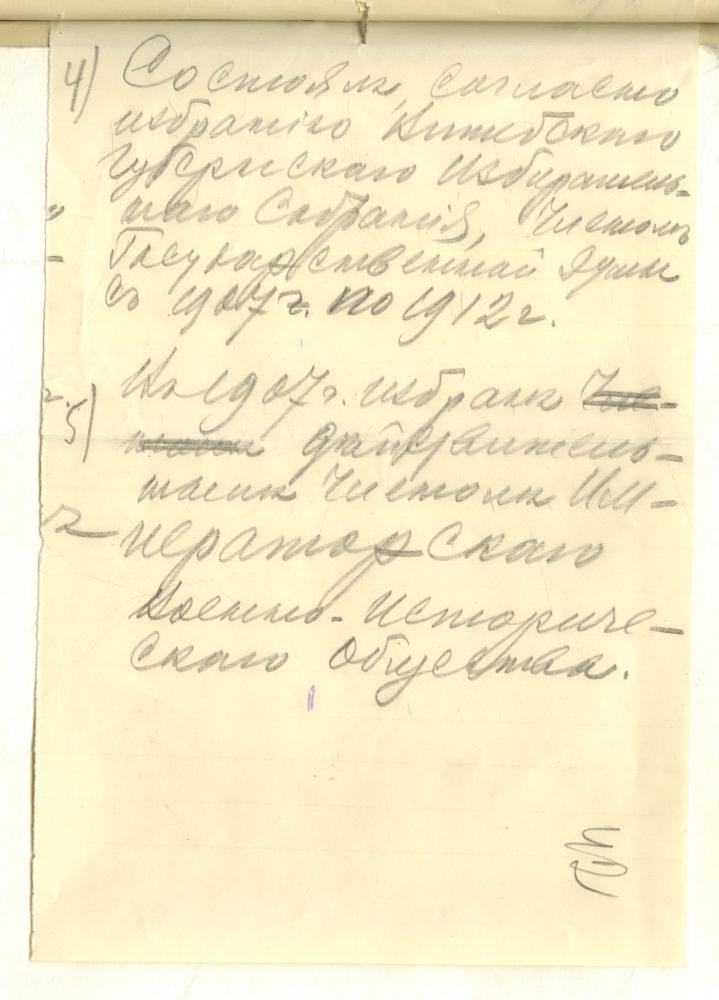 4) Состоялъ, согласно
избранiю Витебскаго
Губернскаго Избиратель-
наго Собранiя, Членомъ
Государственной Думы
съ 1907 г. по 1912 г.
5) Въ 1907 г. избранъ Чле-
номъ действитель-
нымъ Членомъ ИМ-
ператорскаго
Военно-историче-
скаго общества.